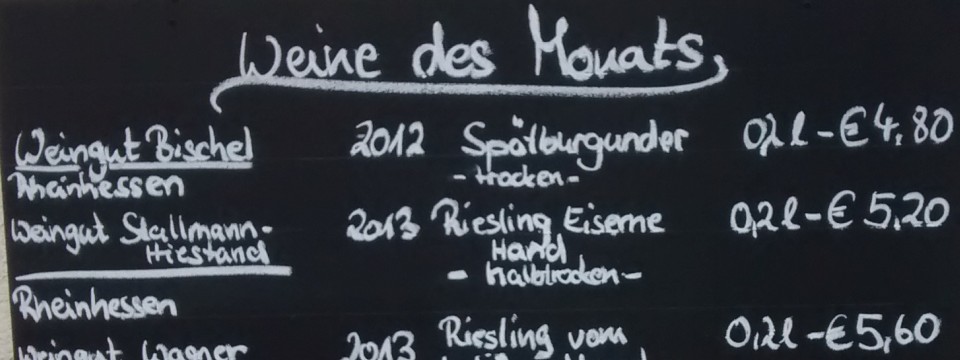 Weine des Monats
Weingut Bischel 2012 Spätburgunder 0,2l - € 4,80
Rheinhessen - trocken -
Weingut Stallmann- 2013 Riesling Eiserne 0,2l - € 5,20
Hiestand Hand
- halbtrocken -
Rheinhessen
Weingut Wagner 2013 Riesling vom 0,2l - € 5,60